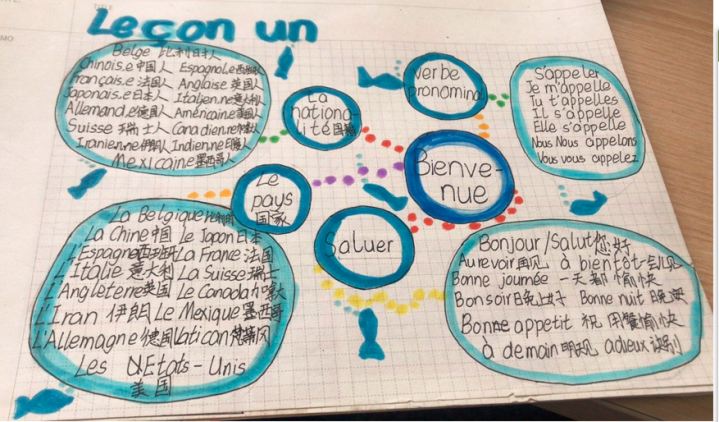 Leçon un
Belge 比利时人
Chinois.e 中国人 Espagnol.e 西班牙人
Français.e 法国人 Anglaise 英国人
Japonais.e 日本人 Italien.ne 意大利人
Allemand.e 德国人 Américaine 美国人
Suisse 瑞士人 Canadienne
Iranien.ne 伊朗人 Indienne 印度人
Mexicaine 墨西哥人
La
nationa-
lité 国籍
Verbe
pronominal
S'appeler
Je m'appelle
Tu t'appelles
Il s'appelle
Elle s'appelle
Nous Nous appelons
Vous vous appelez
Bienve-
nue
Le
pays
国家
Saluer
La Belgique 比利时
La Chine 中国 Le Japon 日本
L'Espagne 西班牙 La France 法国
L'Italie 意大利 La Suisse 瑞士
L'Angleterre 英国 Le Canada 加拿大
L'Iran 伊朗 Le Mexique 墨西哥
L'Allemagne 德国 Vatican 梵蒂冈
Les États-Unis
美国
Bonjour/Salut 您好
Au revoir 再见 à bientôt 一会儿见
Bonne journée 一天都愉快
Bonsoir 晚上好 Bonne nuit 晚安
Bonne appetit 祝用餐愉快
à demain 明天见 adieux 诀别